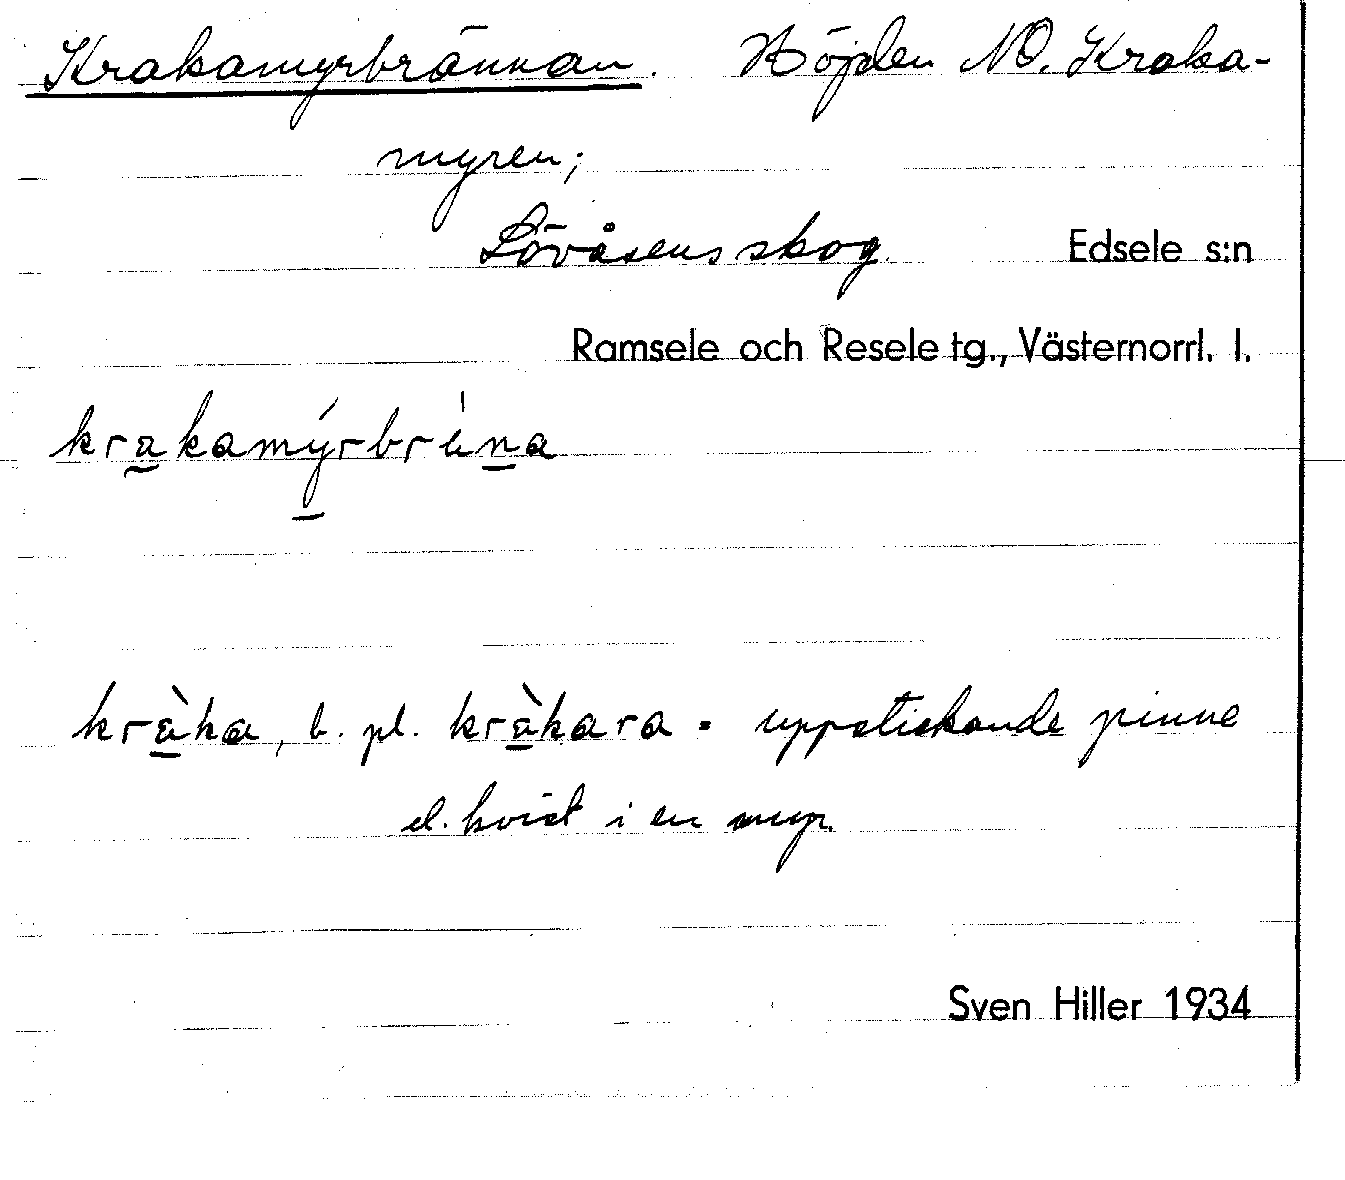 Krakamyrbrännan. Höjden NO. Kraka-
myren;
Lövåsens skog. Edsele s:n
Ramsele och Resele tg., Västernorrl. l.
krakamýrbrä̀na
kràka, b. pl. kràkara = uppstickande pinne
el. kvist i en myr.
Sven Hiller 1934